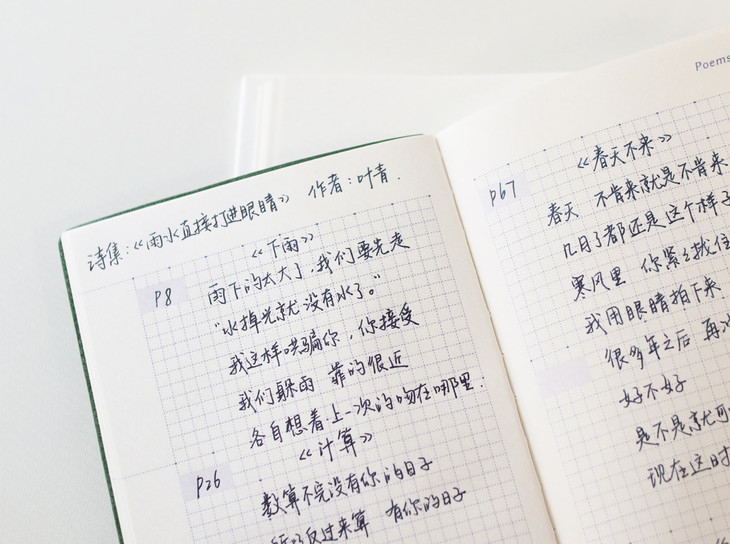 诗集:《雨水直接打进眼睛》 作者:叶青.
《下雨》
P8 雨下的太大了,我们要先走
"水掉光就没有水了。"
我这样哄骗你,你接受
我们躲雨 靠的很近
各自想着上一次的吻在哪里.
《计算》
P26 数算不完没有你的日子
反过来算 有你的日子
Poems
《春天不来》
P67 春天 不肯来就是不肯来
几月了都还是这个样子
寒风里 你紧紧拢住
我用眼睛拍下来
很多年之后 再
好不好
是不是就可
现在这时